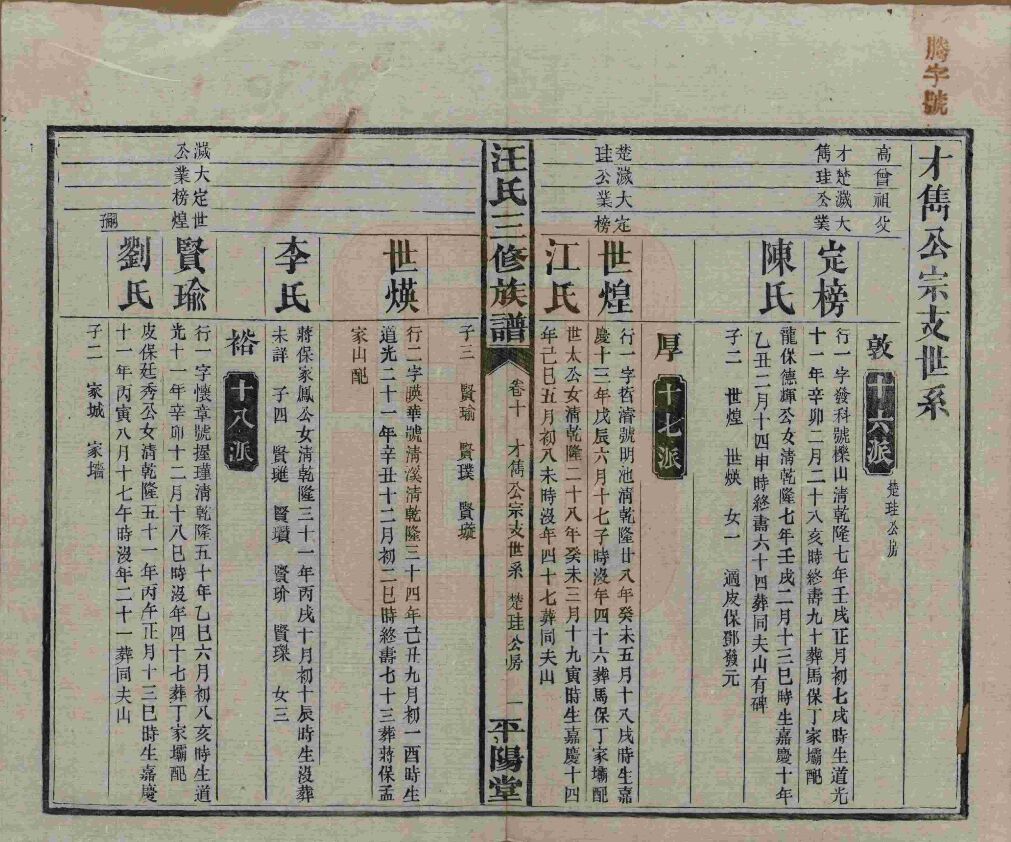 騰字號
才雋公宗支世系
高曾祖父
敦
十六派
楚珪公房
才楚濊大
雋珪公業
定榜
行一字發科號櫟山清乾隆七年壬戌正月初七戌時生道光
十一年辛卯二月二十八亥時終壽九十葬馬保丁家壩配
陳氏
龍保德輝公女清乾隆七年壬戌二月十三巳時生嘉慶十年
乙丑二月十四申時終壽六十四葬同夫山有碑
子二 世煌 世煐 女一 適皮保鄧發元
厚
十七派
楚濊大定
珪公業榜
世煌
行一字哲濬號明池清乾隆廿八年癸未五月十八戌時生嘉
慶十三年戊辰六月十七子時沒年四十六葬馬保丁家壩配
江氏
世太公女清乾隆二十八年癸未三月十九寅時生嘉慶十四
年己巳五月初八未時沒年四十七葬同夫山
汪氏三修族譜
卷十 才雋公宗支世系 楚珪公房 一
平陽堂
子三 賢瑜 賢璞 賢璇
世煐
行二字暎華號清溪清乾隆三十四年己丑九月初一酉時生
道光二十一年辛丑十二月初二巳時終壽七十三葬蔣保孟
家山配
李氏
蔣保家鳳公女清乾隆三十一年丙戌十月初十辰時生沒葬
未詳 子四 賢璡 賢瓚 賢玠 賢璨 女三
裕
十八派
濊大定世
公業榜煌
賢瑜
行一字懷章號握瑾清乾隆五十年乙巳六月初八亥時生道
光十一年辛卯十二月十八巳時沒年四十七葬丁家壩配
嗣孫
劉氏
皮保廷秀公女清乾隆五十一年丙午正月十三巳時生嘉慶
十一年丙寅八月十七午時沒年二十一葬同夫山
子二 家城 家墻